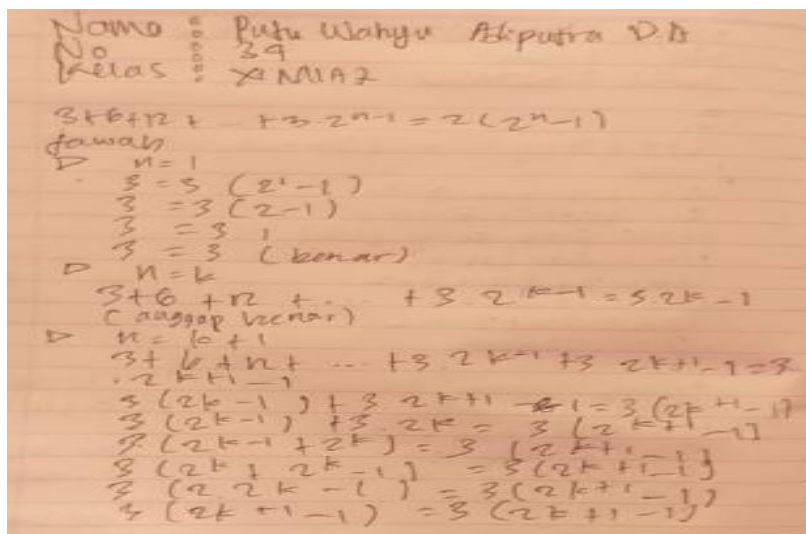 Nama : Putu Wahyu Adiputra D.A
No : 39
Kelas : XI MIA 2
3+6+12 + ... +3.2ⁿ⁻¹ = 2(2ⁿ-1)
Jawab
▷ n=1
3 = 3 (2¹-1)
3 = 3 (2-1)
3 = 3 1
3 = 3 (benar)
▷ n = k
3+6 +12 + ... + 3.2ᵏ⁻¹ = 3.2ᵏ-1
(anggap benar)
▷ n = k+1
3+6+12+ ... +3.2ᵏ⁻¹ +3 2ᵏ⁺¹⁻¹=3
.2ᵏ⁺¹-1
3 (2ᵏ-1) + 3 2ᵏ⁺¹ - 1 = 3 (2ᵏ⁺¹-1)
3 (2ᵏ-1) +3.2ᵏ = 3 (2ᵏ⁺¹-1)
3 (2ᵏ-1 + 2ᵏ) = 3 (2ᵏ⁺¹-1)
3 (2ᵏ + 2ᵏ-1) = 3(2ᵏ⁺¹-1)
3 (2.2ᵏ-1) = 3(2ᵏ⁺¹-1)
3 (2ᵏ⁺¹-1) = 3 (2ᵏ⁺¹-1)